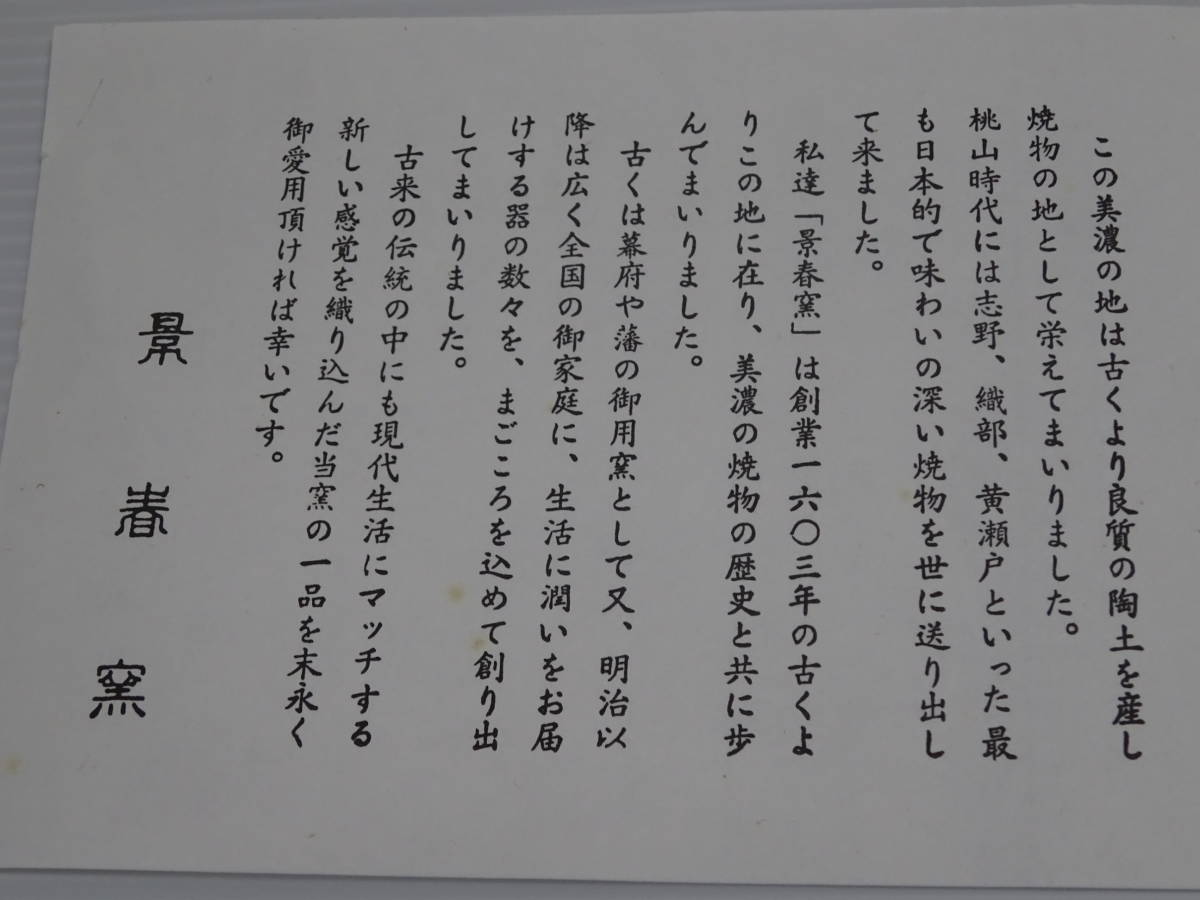 この美濃の地は古くより良質の陶土を産し
焼物の地として栄えてまいりました。
桃山時代には志野、織部、黄瀬戸といった最
も日本的で味わいの深い焼物を世に送り出し
て来ました。
私達「景春窯」は創業一六〇三年の古くよ
りこの地に在り、美濃の焼物の歴史と共に歩
んでまいりました。
古くは幕府や藩の御用窯として又、明治以
降は広く全国の御家庭に、生活に潤いをお届
けする器の数々を、まごころを込めて創り出
してまいりました。
古来の伝統の中にも現代生活にマッチする
新しい感覚を織り込んだ当窯の一品を末永く
御愛用頂ければ幸いです。
景春窯